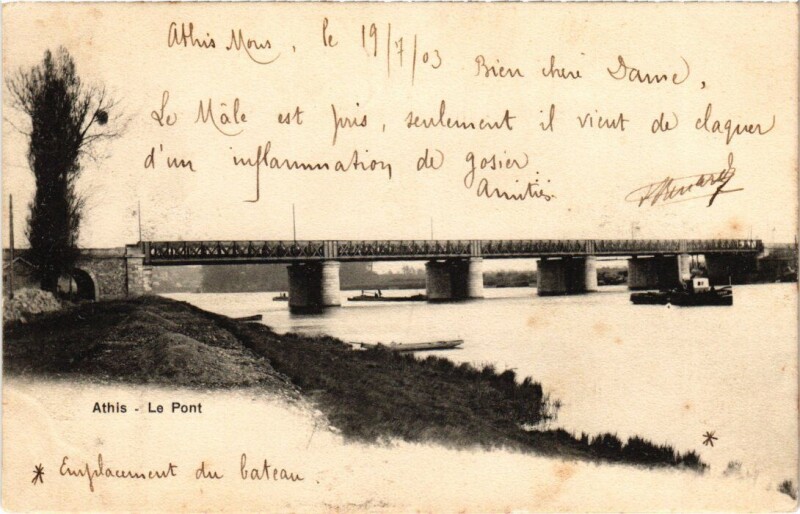 Athis Mons, le 19/7/03
Bien chère Dame,
Le Mâle est pris, seulement il vient de claquer
d'un inflammation de gosier.
Amitiés.
Athis - Le Pont
* Emplacement du bateau.
*